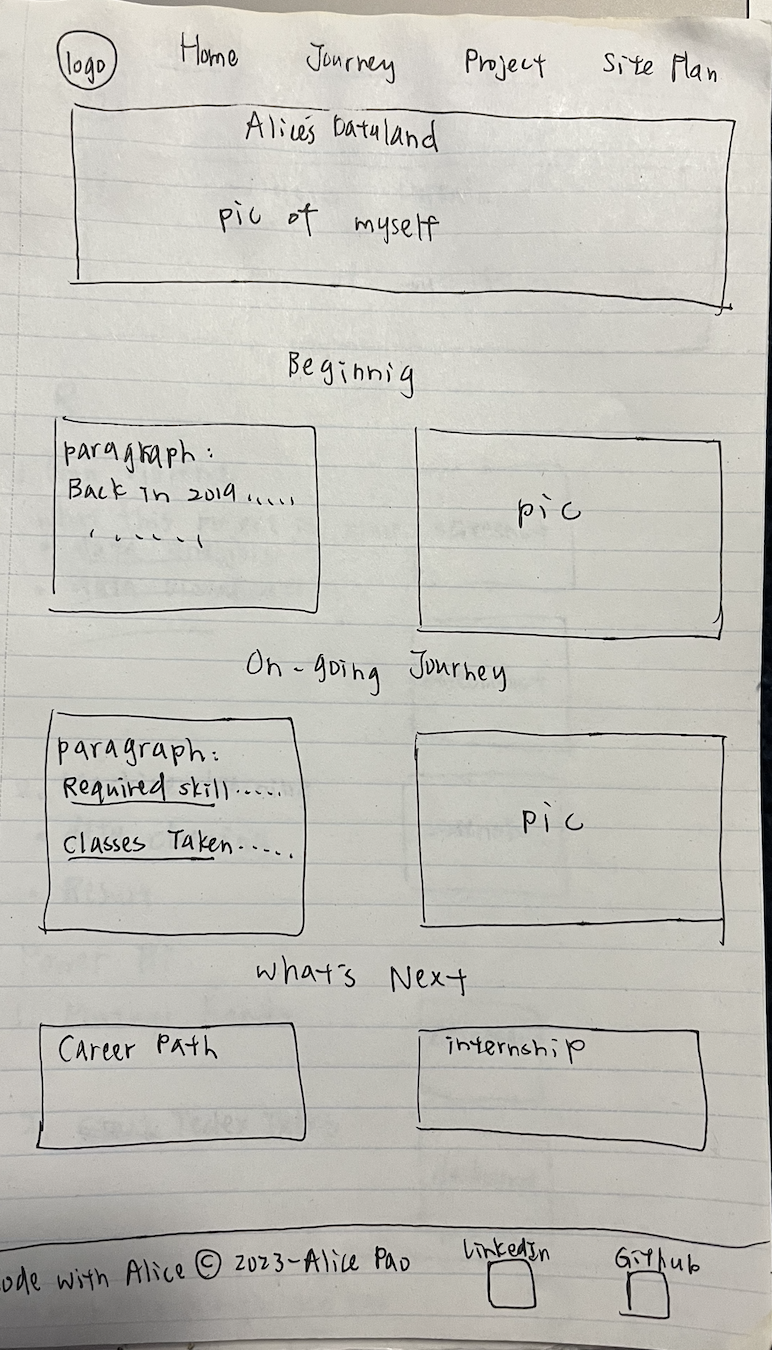 logo Home Journey Project Site Plan
Alice's Dataland
pic of myself
Beginnig
paragraph:
Back in 2019 .....
......
pic
On-going Journey
paragraph:
Required skill.....
Classes Taken.....
pic
What's Next
Career Path
internship
ode with Alice © 2023-Alice Pao
LinkedIn
Github